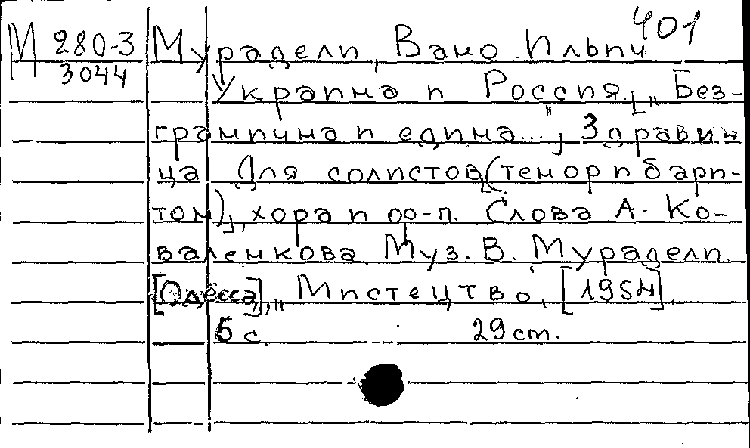 401
М 280-3 Мурадели, Вано Ильич
3044
Украина и Россия. [„Без-
гранична и едина...", Здравин-
ца Для солистов (тенор и барп-
тон)], хора и ф-п. Слова А. Ко-
валенкова. Муз. В. Мурадели.
[Одесса], „Мистецтво, [1954].
6 с. 29 cm.